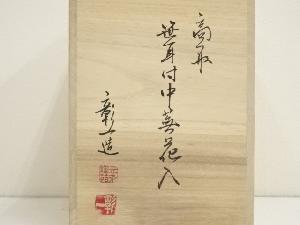 高取
笹耳付中蕪花入
彰一造